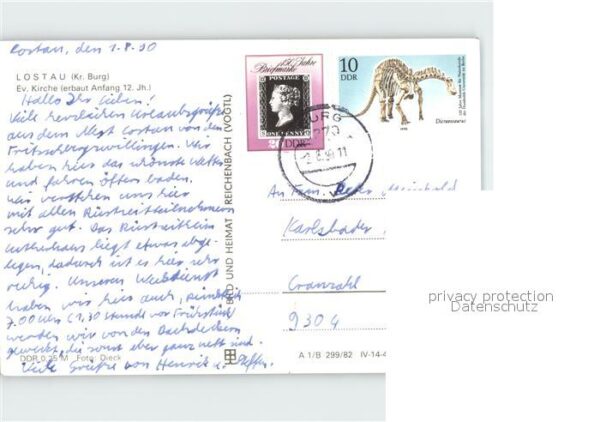 Lostau, den 1.8.90
LOSTAU (Kr. Burg)
Ev. Kirche (erbaut Anfang 12. Jh.)
Hallo Ihr Lieben!
Viele herzlichen Urlaubsgrüße
aus dem Nest Lostau von den
Fritschbergzwillingen. Wir
haben hier das schönste Wetter
und fahren öfters baden.
Wir verstehen uns hier
mit allen Rüstzeitteilnehmern
sehr gut. Das Rüstzeitheim
liegt etwas abge-
legen, dadurch ist es hier sehr
ruhig. Unseren Weckdienst
haben wir hier auch, pünktlich
7.00 Uhr (1,30 Stunde vor Frühstück)
werden wir von den Dachdeckern
geweckt, die sonst aber ganz nett sind.
Viele Grüße von Henrik u. Steffen.
DDR 0,25 M Foto: Dieck
BILD UND HEIMAT REICHENBACH (VOGTL)
A 1/B 299/82 IV-14-4
150 Jahre
Briefmarke
POSTAGE
ONE PENNY
20 DDR
10
DDR
Dicraeosaurus
1990
BURG
270
An Fam.
Karlsbader
Cranzahl
9304
privacy protection
Datenschutz